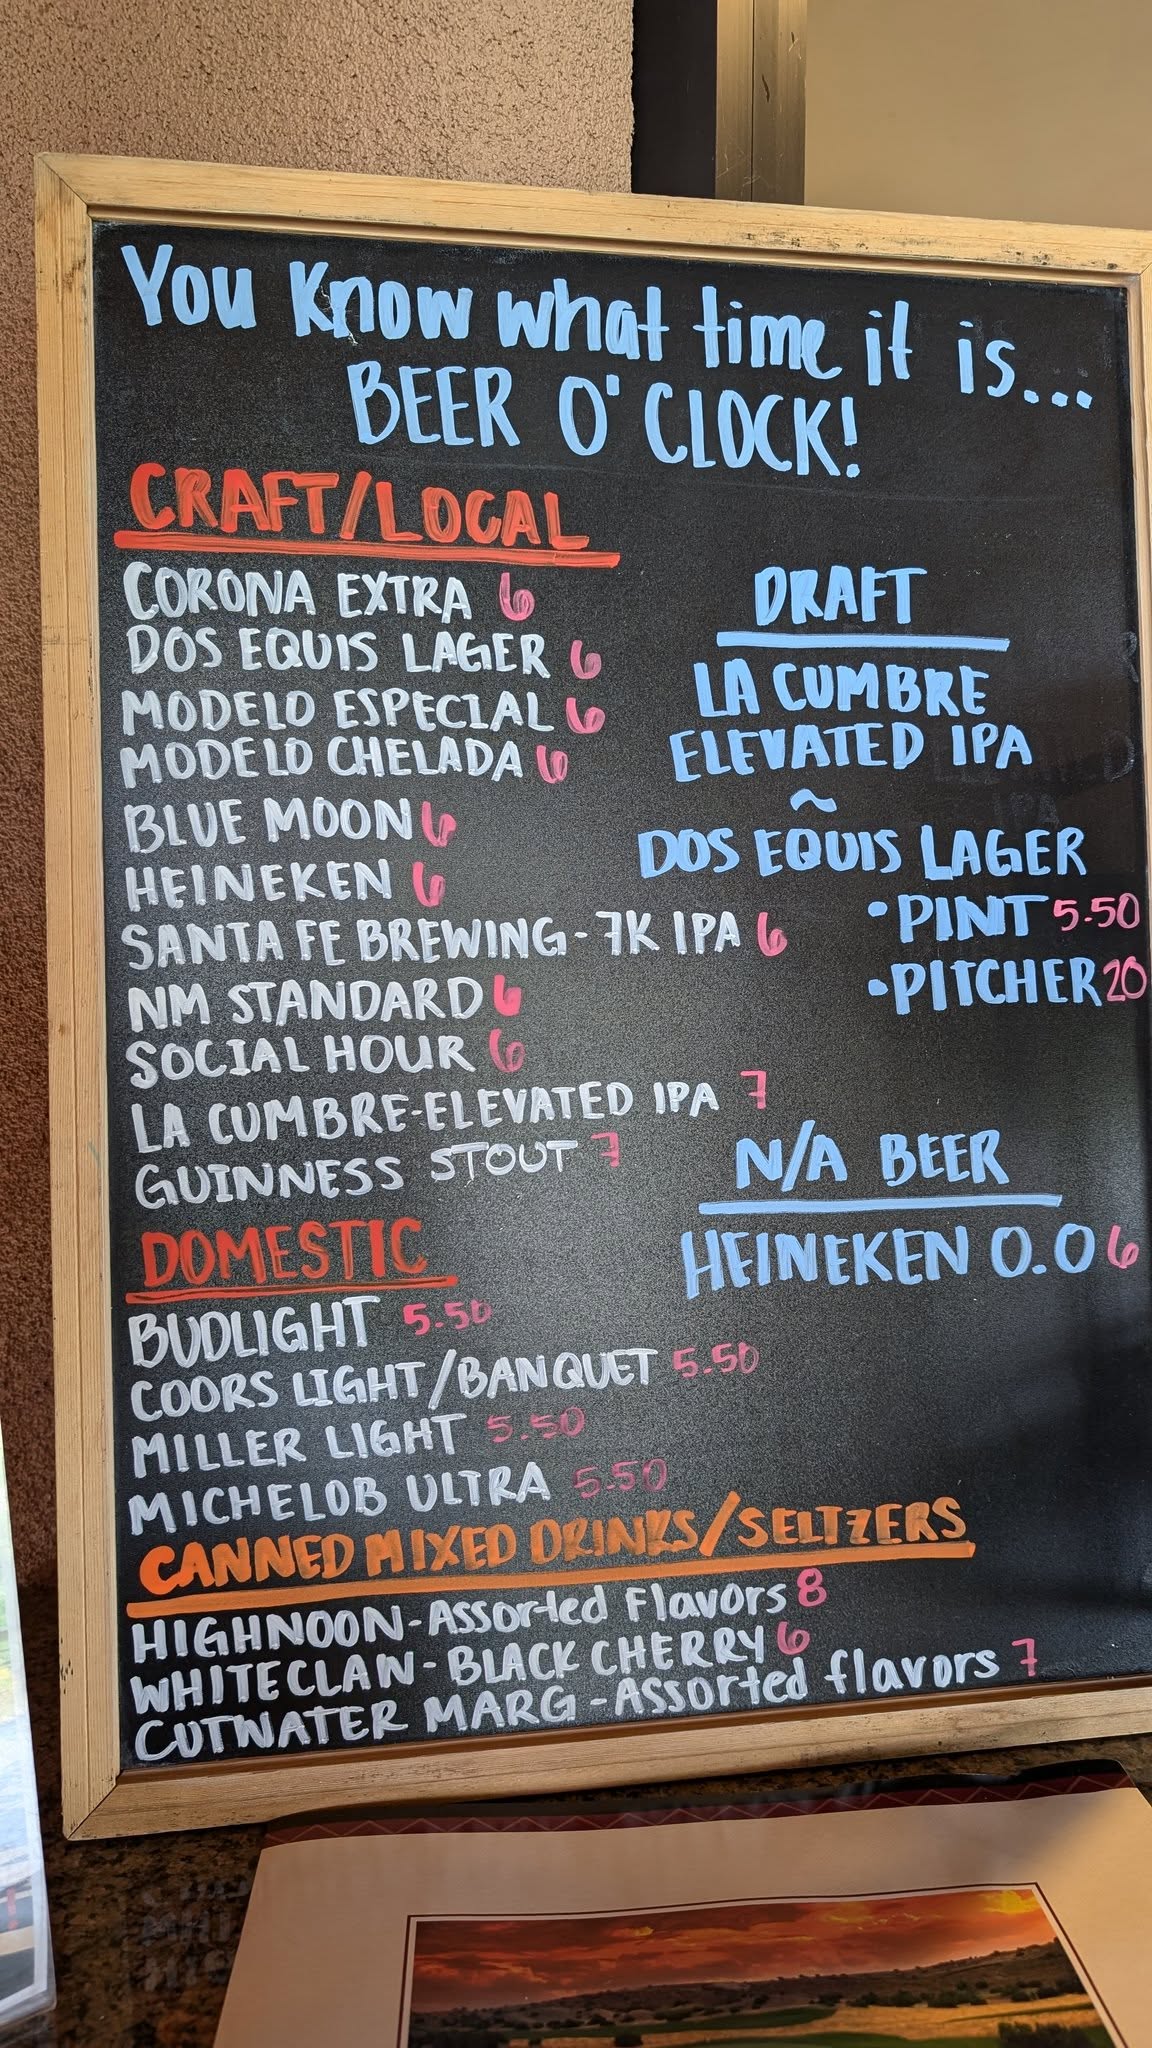 You Know what time it is...
BEER O'CLOCK!
CRAFT/LOCAL
CORONA EXTRA 6
DOS EQUIS LAGER 6
MODELO ESPECIAL 6
MODELO CHELADA 6
BLUE MOON 6
HEINEKEN 6
SANTA FE BREWING - 7K IPA 6
NM STANDARD 6
SOCIAL HOUR 6
LA CUMBRE-ELEVATED IPA 7
GUINNESS STOUT 7
DOMESTIC
BUDLIGHT 5.50
COORS LIGHT/BANQUET 5.50
MILLER LIGHT 5.50
MICHELOB ULTRA 5.50
CANNED MIXED DRINKS/SELTZERS
HIGHNOON-Assorted Flavors 8
WHITECLAW - BLACK CHERRY 6
CUTWATER MARG - Assorted flavors 7
DRAFT
LA CUMBRE
ELEVATED IPA
~
DOS EQUIS LAGER
• PINT 5.50
• PITCHER 20
N/A BEER
HEINEKEN 0.0 6